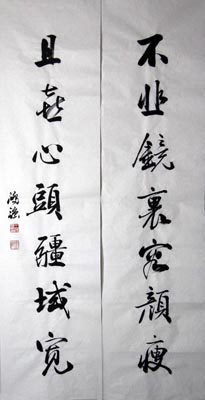 不悲鏡裏容顏瘦
且喜心頭疆域寬